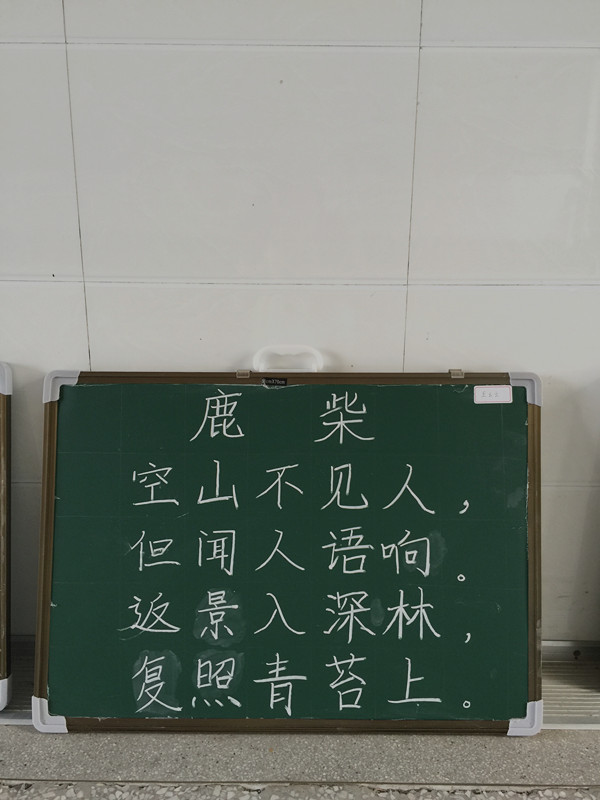 鹿 柴
空山不见人，
但闻人语响。
返景入深林，
复照青苔上。